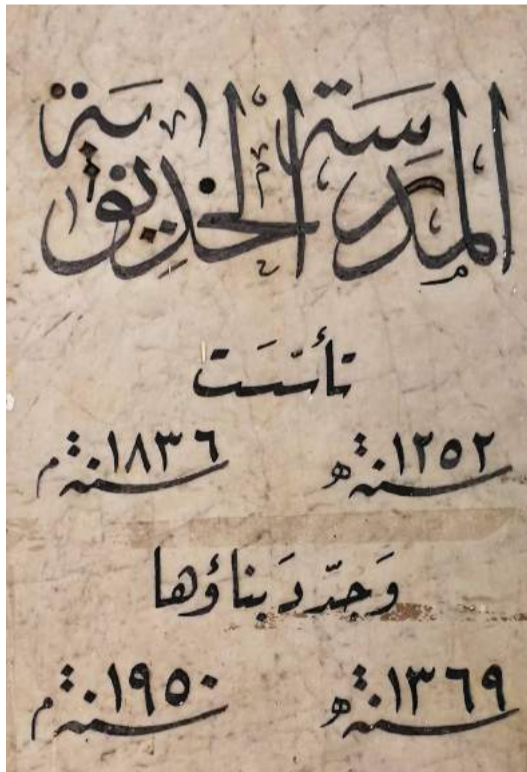 المدرسة الخديوية
تأسست
سنة ١٢٥٢ ه سنة ١٨٣٦ م
وجدّد بناؤها
سنة ١٣٦٩ ه سنة ١٩٥٠ م